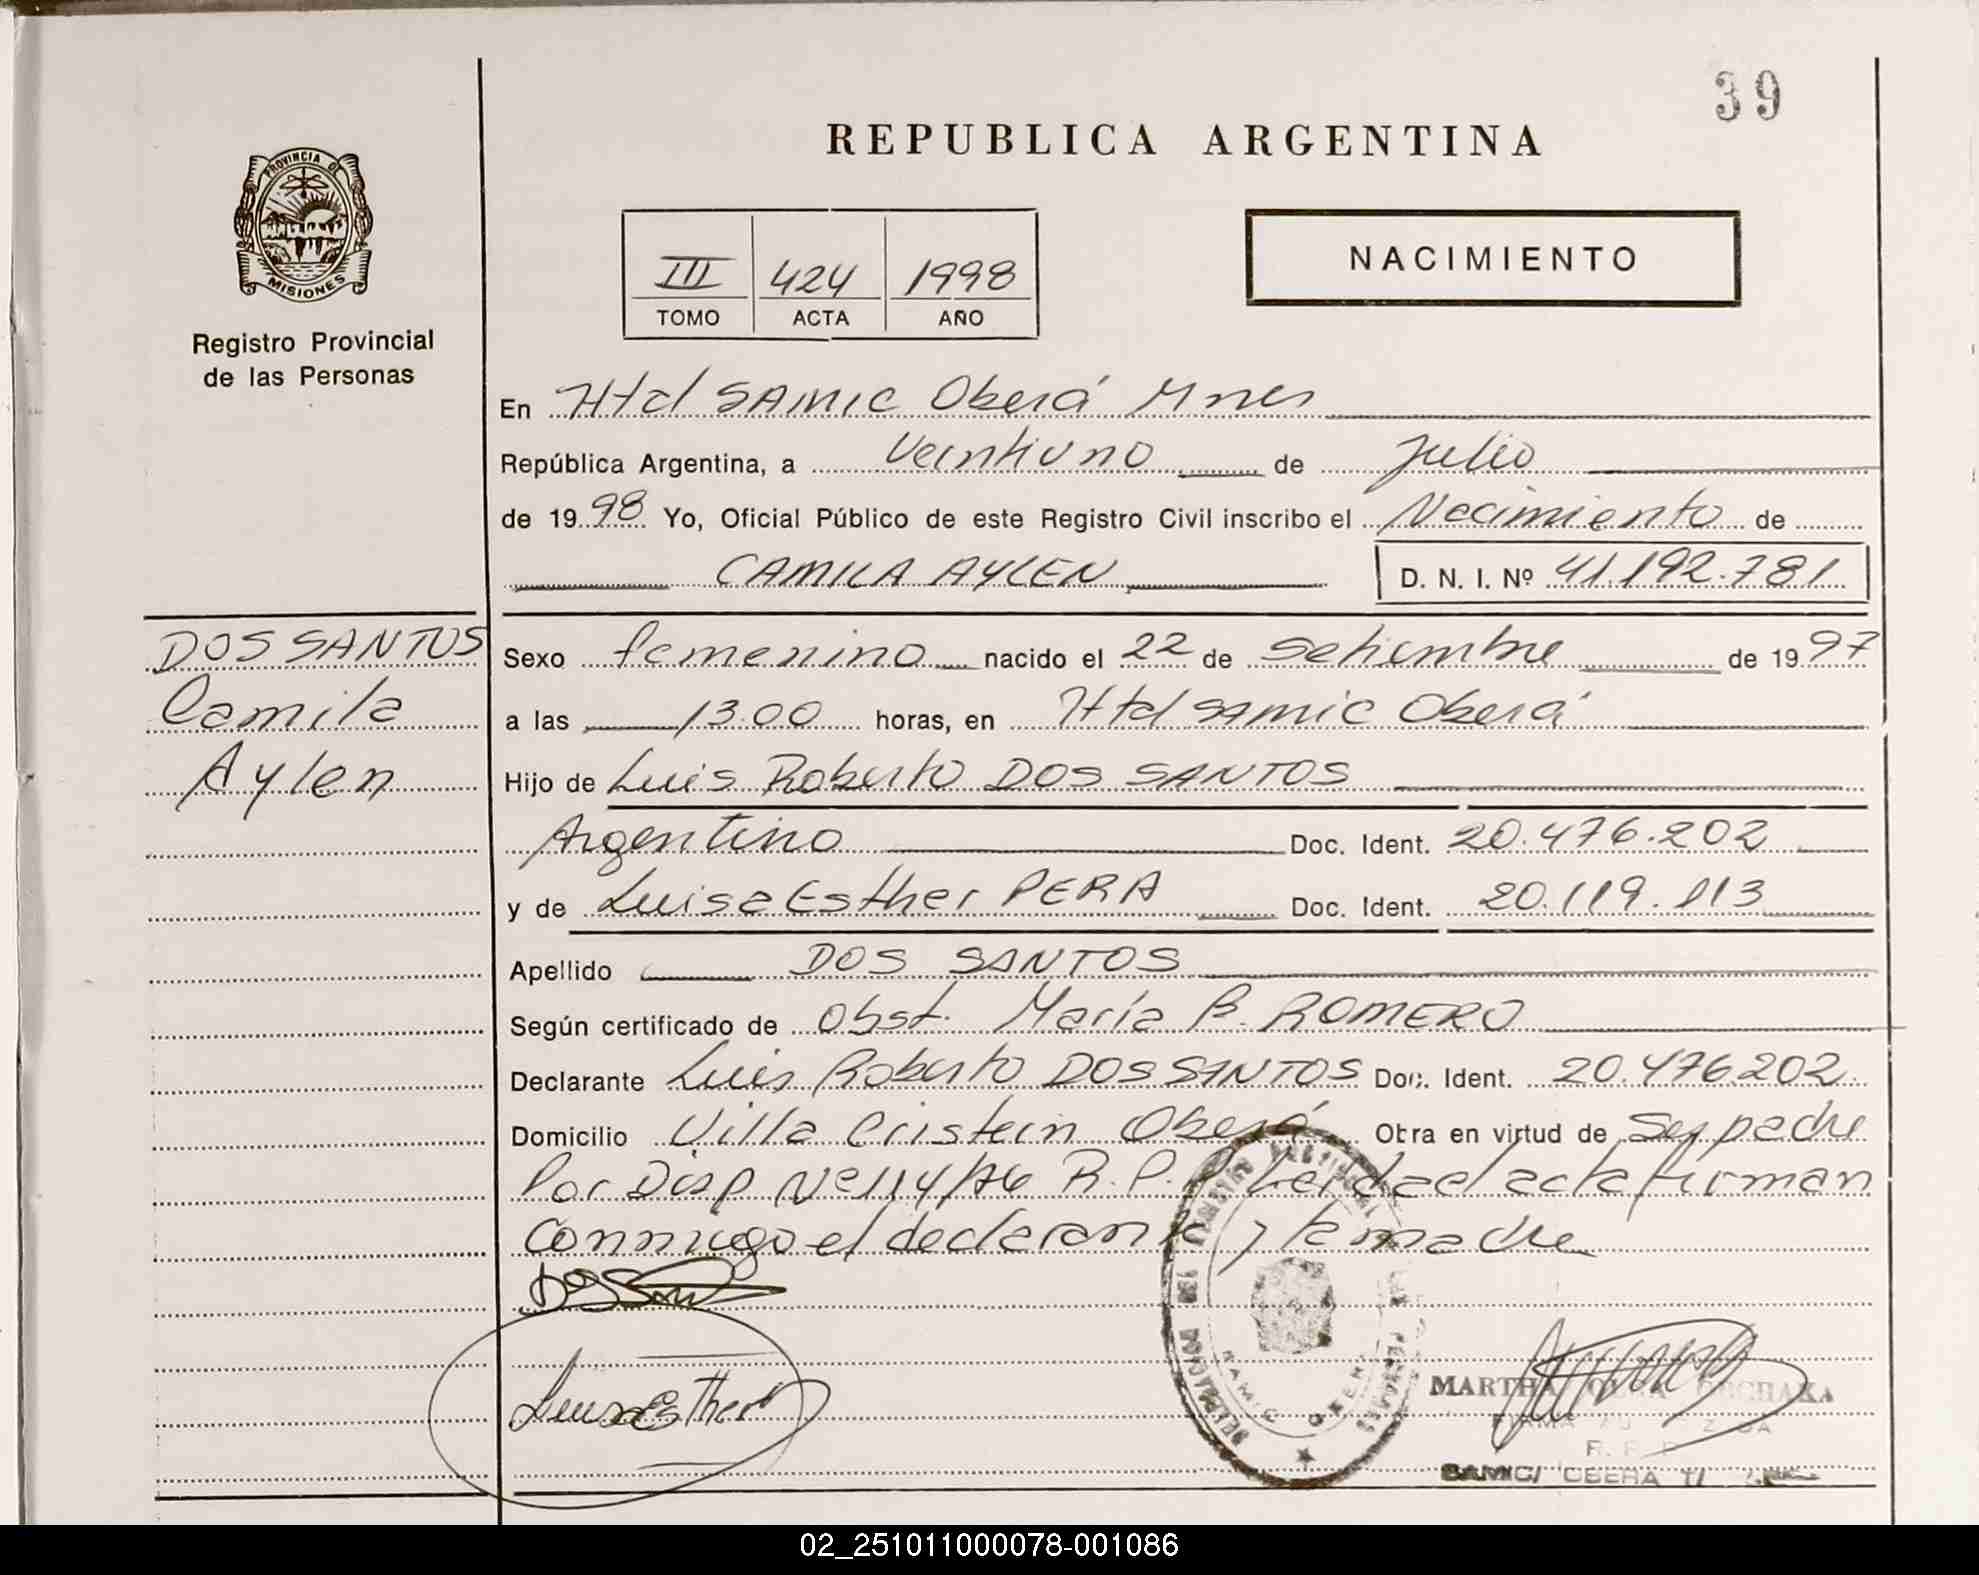 39
REPUBLICA ARGENTINA
PROVINCIA DE
MISIONES
Registro Provincial
de las Personas
III 424 1998
TOMO ACTA AÑO
NACIMIENTO
En Htal SAMIC Oberá Mnes
República Argentina, a Veintiuno de Julio
de 1998 Yo, Oficial Público de este Registro Civil inscribo el Nacimiento de
CAMILA AYLEN D. N. I. Nº 41.192.781
DOS SANTOS
Camila
Aylen
Sexo femenino nacido el 22 de Setiembre de 1997
a las 13.00 horas, en Htal SAMIC Oberá
Hijo de Luis Roberto DOS SANTOS
Argentino Doc. Ident. 20.476.202
y de Luisa Esther PERA Doc. Ident. 20.119.113
Apellido DOS SANTOS
Según certificado de Obst. María B. ROMERO
Declarante Luis Roberto DOS SANTOS Doc. Ident. 20.476.202
Domicilio Villa Cristein Oberá Obra en virtud de Ser padre
Por Disp Nº 114/76 R.P.P Leida el acta firman
conmigo el declarante y la madre
Dos Santos
Luisa Esther
SAMIC OBERA
MARTHA
R. P. P
SAMIC/ OBERA
02_251011000078-001086